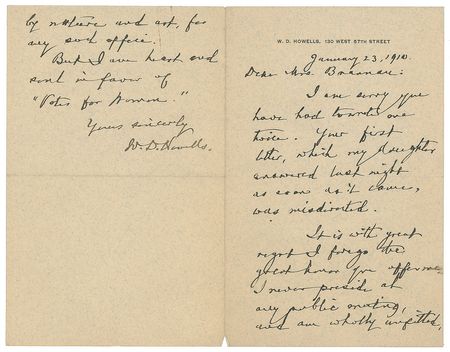 W. D. HOWELLS, 130 WEST 57TH STREET
January 23, 1910.
Dear Mrs. Brannan:
I am sorry you
have had to write me
twice. Your first
letter, which my daughter
answered last night
as soon as it came,
was misdirected.
It is with great
regret I forego the
great honor you offer me.
I never preside at
any public meeting,
and am wholly unfitted,
by nature and art, for
any such office.
But I am heart and
soul in favor of
"Votes for Women."
Yours sincerely
W. D. Howells.